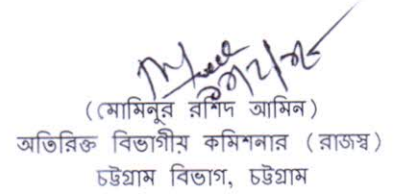 (মোমিনুর রশিদ আমিন)
অতিরিক্ত বিভাগীয় কমিশনার (রাজস্ব)
চট্টগ্রাম বিভাগ, চট্টগ্রাম